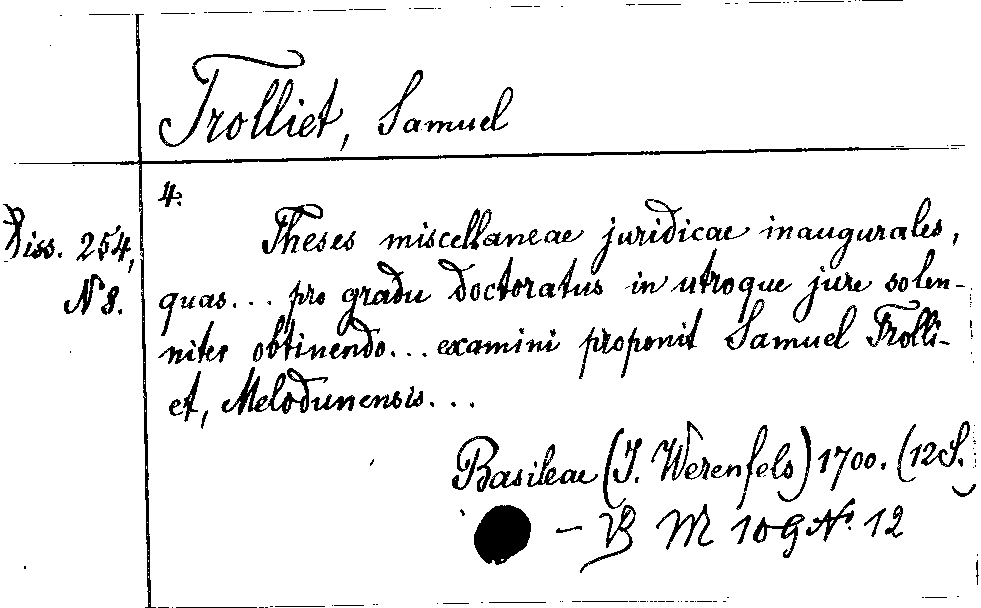 Trolliet, Samuel
4.
Diss. 254,
N 8.
Theses miscellaneae juridicae inaugurales,
quas... pro gradu doctoratus in utroque jure solen-
niter obtinendo... examini proponit Samuel Trolli-
et, Melodunensis...
Basileae (J. Werenfels) 1700. (12 S.)
– B M 109 No. 12